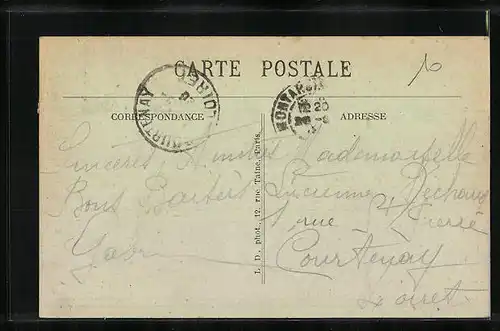 CARTE POSTALE
CORRESPONDANCE
ADRESSE
COURTENAY LOIRET
MONTARGIS
20
Sincères Amitiés
Bons Baisers
L. D., phot., 12, rue Taine, Paris.
Mademoiselle
Lucienne
rue
Courtenay
Loiret